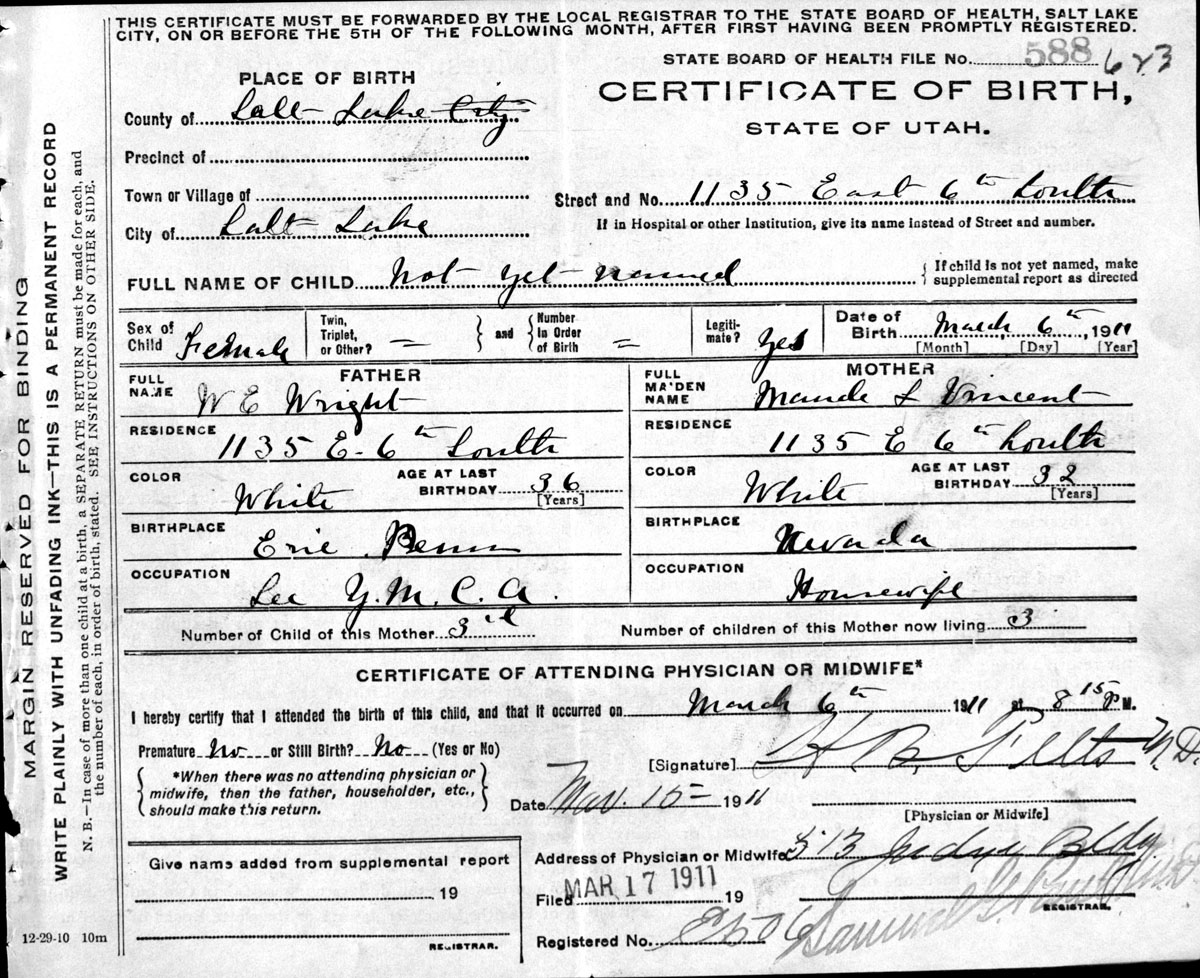 THIS CERTIFICATE MUST BE FORWARDED BY THE LOCAL REGISTRAR TO THE STATE BOARD OF HEALTH, SALT LAKE
CITY, ON OR BEFORE THE 5TH OF THE FOLLOWING MONTH, AFTER FIRST HAVING BEEN PROMPTLY REGISTERED.
STATE BOARD OF HEALTH FILE No. 588 623
PLACE OF BIRTH
CERTIFICATE OF BIRTH,
STATE OF UTAH.
County of Salt Lake City
Precinct of
Town or Village of
Street and No. 1135 East 6th South
City of Salt Lake
If in Hospital or other Institution, give its name instead of Street and number.
FULL NAME OF CHILD Not yet named
{ If child is not yet named, make
supplemental report as directed
Sex of Child Female
Twin, Triplet, or Other? =
} and {
Number In Order of Birth =
Legiti-mate? Yes
Date of Birth March 6th, 1911
[Month] [Day] [Year]
FATHER
FULL NAME W E Wright
RESIDENCE 1135 E. 6th South
COLOR White
AGE AT LAST BIRTHDAY 36
[Years]
BIRTHPLACE Erie Penn
OCCUPATION Sec Y.M.C.A.
MOTHER
FULL MAIDEN NAME Maude L Vincent
RESIDENCE 1135 E 6th South
COLOR White
AGE AT LAST BIRTHDAY 32
[Years]
BIRTHPLACE Nevada
OCCUPATION Housewife
Number of Child of this Mother 3rd
Number of children of this Mother now living 3
CERTIFICATE OF ATTENDING PHYSICIAN OR MIDWIFE*
I hereby certify that I attended the birth of this child, and that it occurred on March 6th 1911 at 8 15 P M.
Premature No or Still Birth? No (Yes or No)
[Signature] H B M.D.
{ *When there was no attending physician or
midwife, then the father, householder, etc.,
should make this return. }
Date Mar. 15 1911
[Physician or Midwife]
Give name added from supplemental report
19
REGISTRAR.
Address of Physician or Midwife 513 Judge Bldg
Filed MAR 17 1911 19
Samuel G.
REGISTRAR.
Registered No.
12-29-10 10m
MARGIN RESERVED FOR BINDING
WRITE PLAINLY WITH UNFADING INK—THIS IS A PERMANENT RECORD
N. B.—In case of more than one child at a birth, a SEPARATE RETURN must be made for each, and
the number of each, in order of birth, stated. SEE INSTRUCTIONS ON OTHER SIDE.